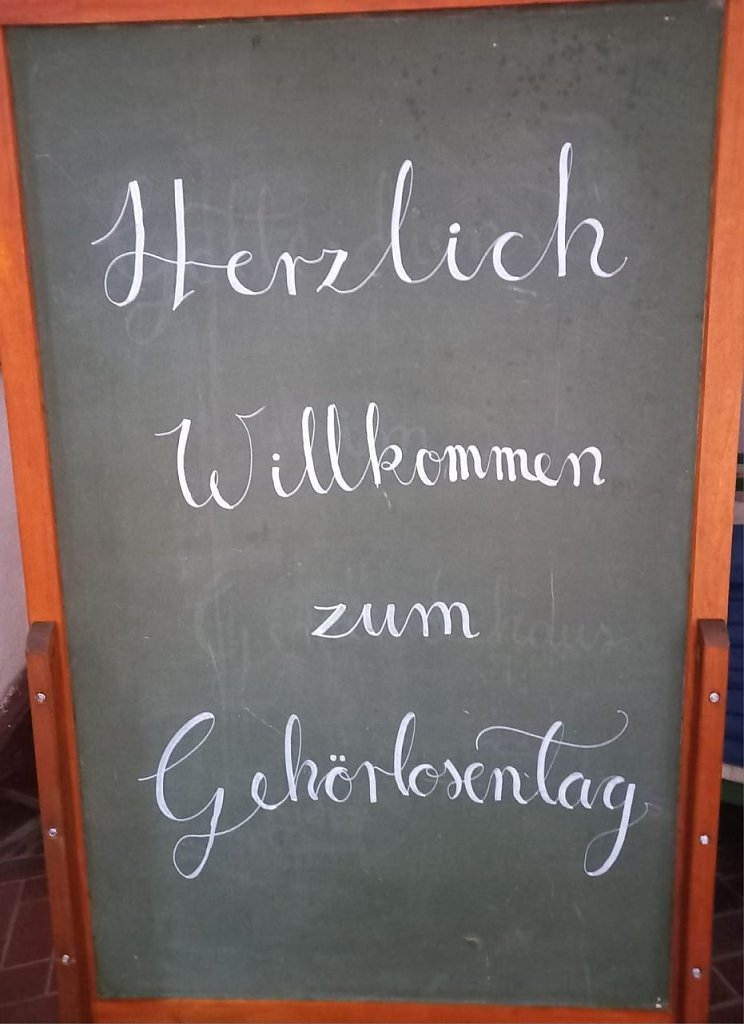 Herzlich
Willkommen
zum
Gehörlosentag